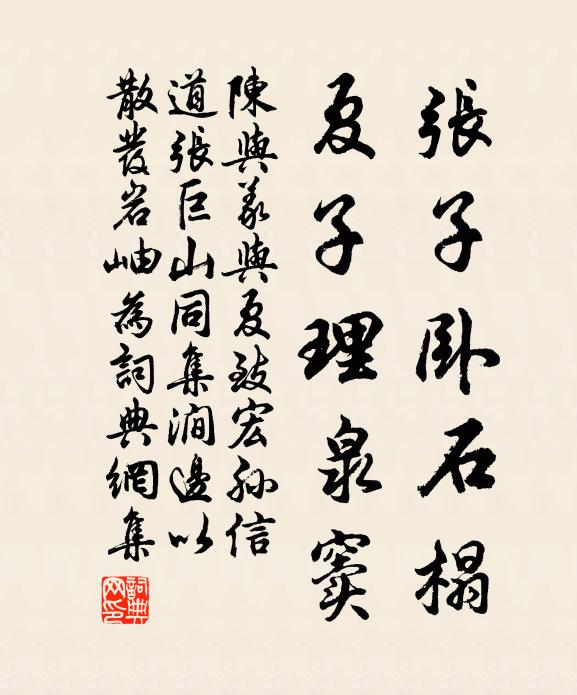 張子卧石榻
夏子理泉竇
陳與義與夏致宏孫信
道張巨山同集澗邊以
散髮岩岫為詞典網集
詞典網印